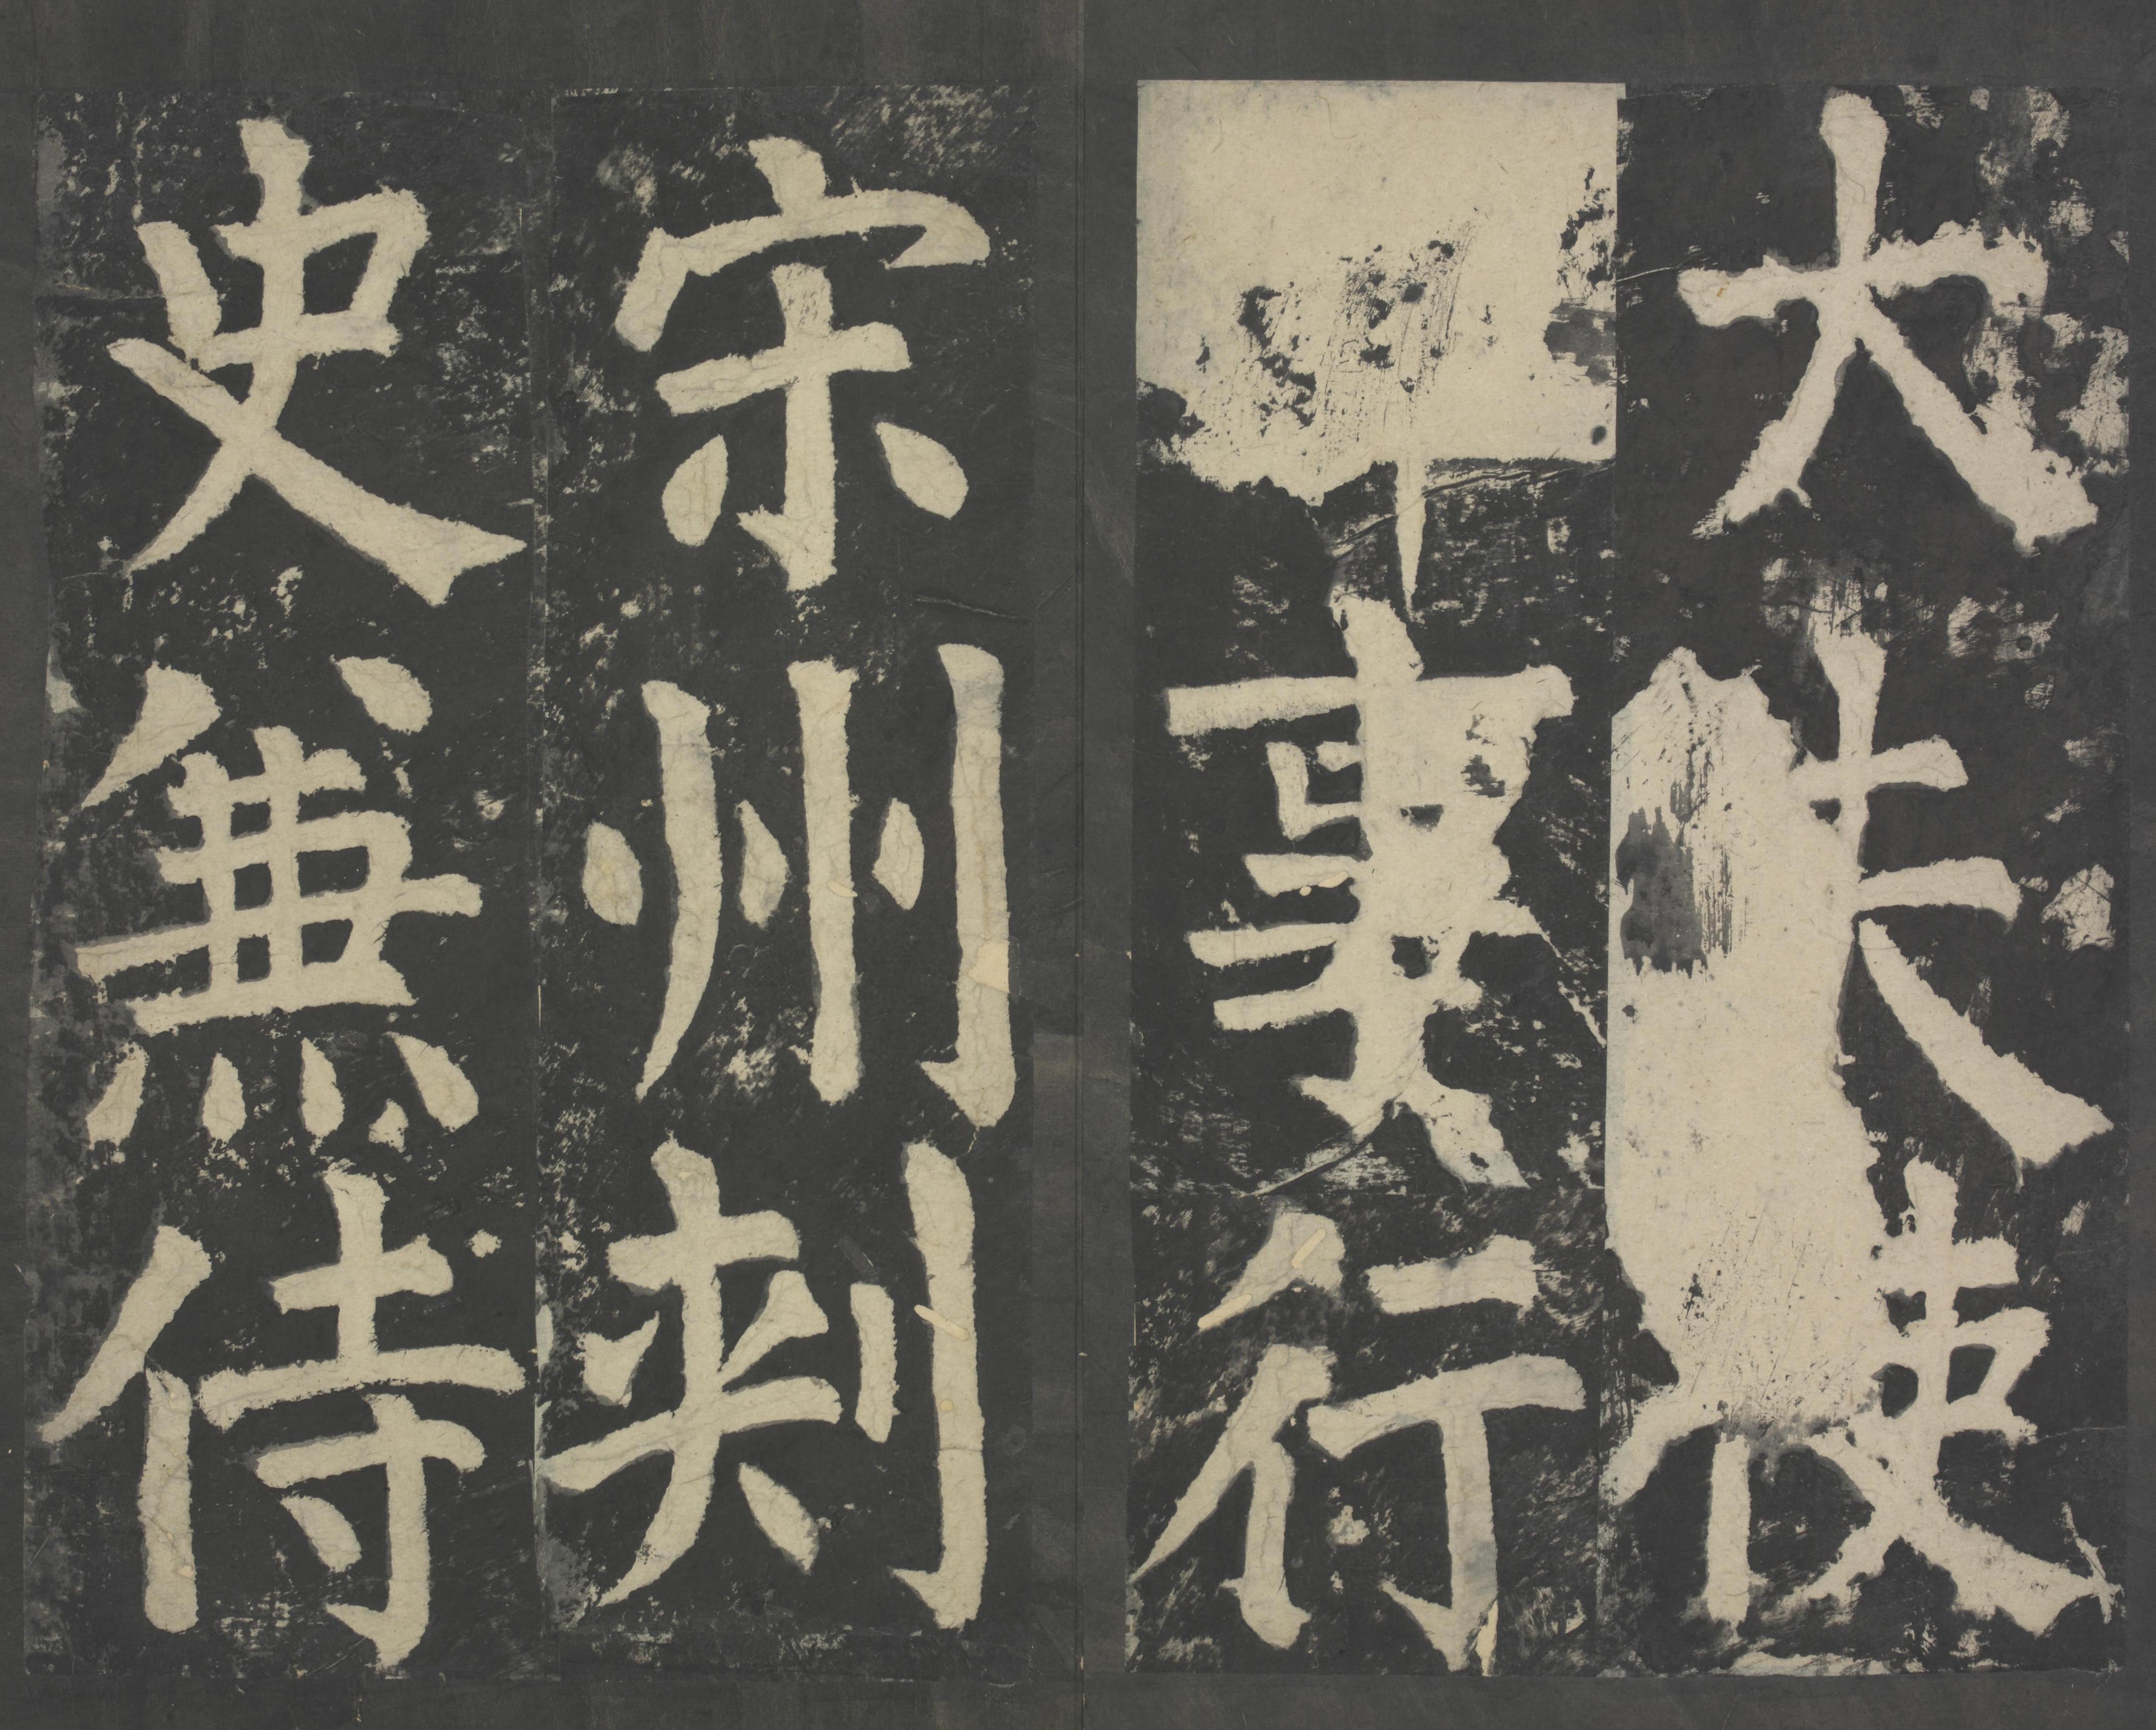 大夫使
事行
宋州刺
史兼侍